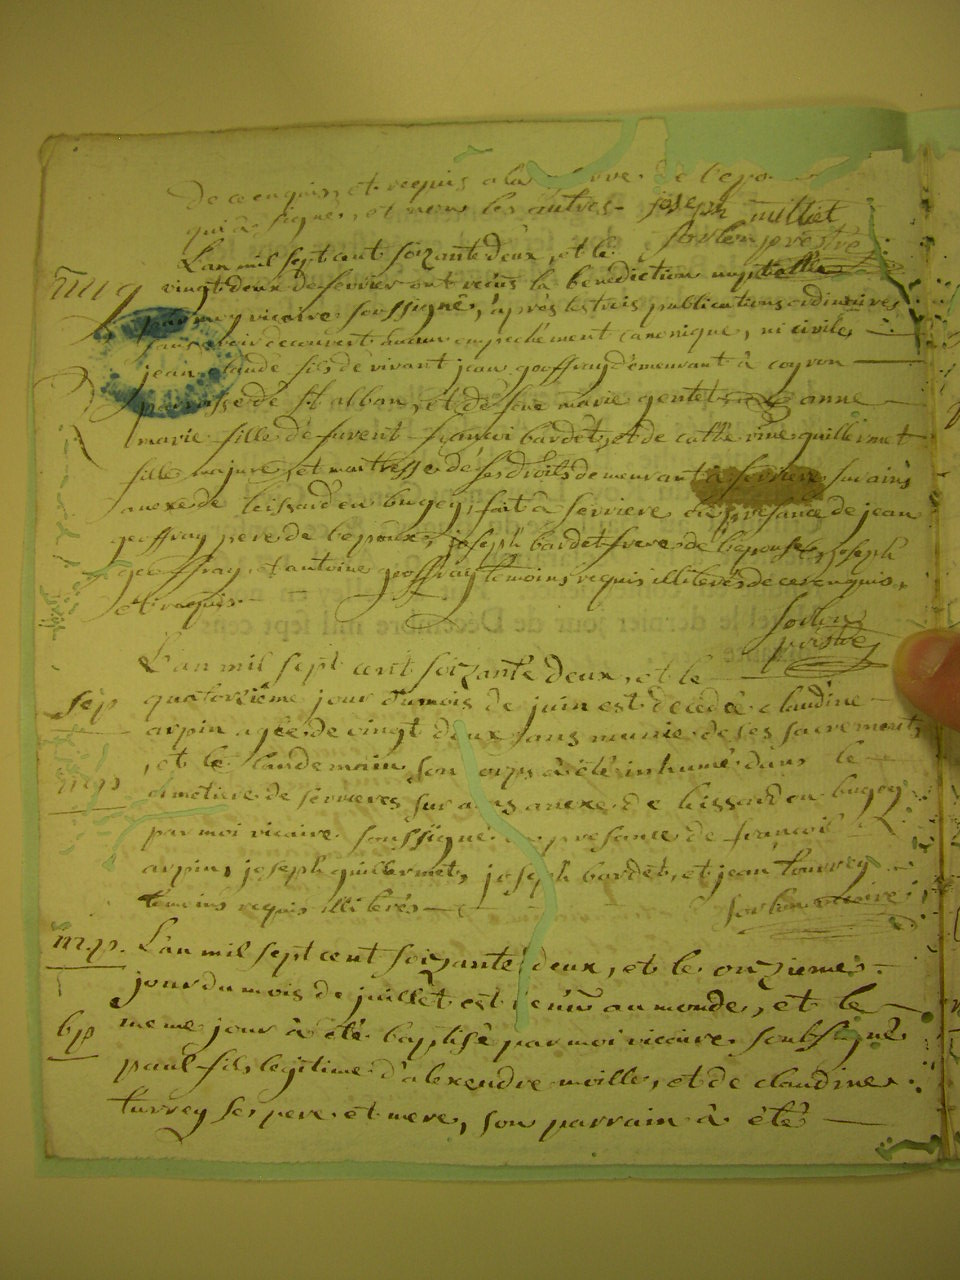 de ce enquis, et requis a la de l'epo
qui à signé, et non les autres. joseph milliet
sorlin prestre
L'an mil sept cent soizante deux, et le
mg
vingt deux de fevrier ont reçus la benediction nuptialle
par moy vicaire soussigné, après les trois publications ordinaires
sans avoir decouvert aucun empechement canonique, ni civile,
jean claude fils de vivant jean geoffray demeurant à coyron
parroisse de st alban, et de feue marie gentet anne
marie fille de furent françoi bardet, et de catherine guillermet
fille majure, et maitresse de ses droits demeurant à serriere sur ains
anexe de leissard en bugey, fait à serriere en presance de jean
geoffray pere de l'epoux, joseph bardet frere de l'epouse, joseph
geoffray, et antoine geoffray temoins requis illiterés de ce enquis,
et requis.
sorlin
prestre
L'an mil sept cent soizante deux, et le
sep
quatorzième jour du mois de juin est decedée claudine
arpin agée de vingt deux ans munie de ses sacrements,
et le landemain son corps à été inhumé dans le
cimetiere de serrieres sur ains anexe de leissard en bugey
par moi vicaire soussigné en presance de françoi
arpin, joseph guillermet, joseph bardet, et jean tourrey
temoins requis illiterés
sorlin vicaire
m.p. L'an mil sept cent soizante deux, et le onzieme
jour du mois de juillet est venu au monde, et le
bp
meme jour à été baptisé par moi vicaire soubsigné
paul fils legitime d'alexendre moille, et de claudine
turrey ses pere et mere, son parrain à été